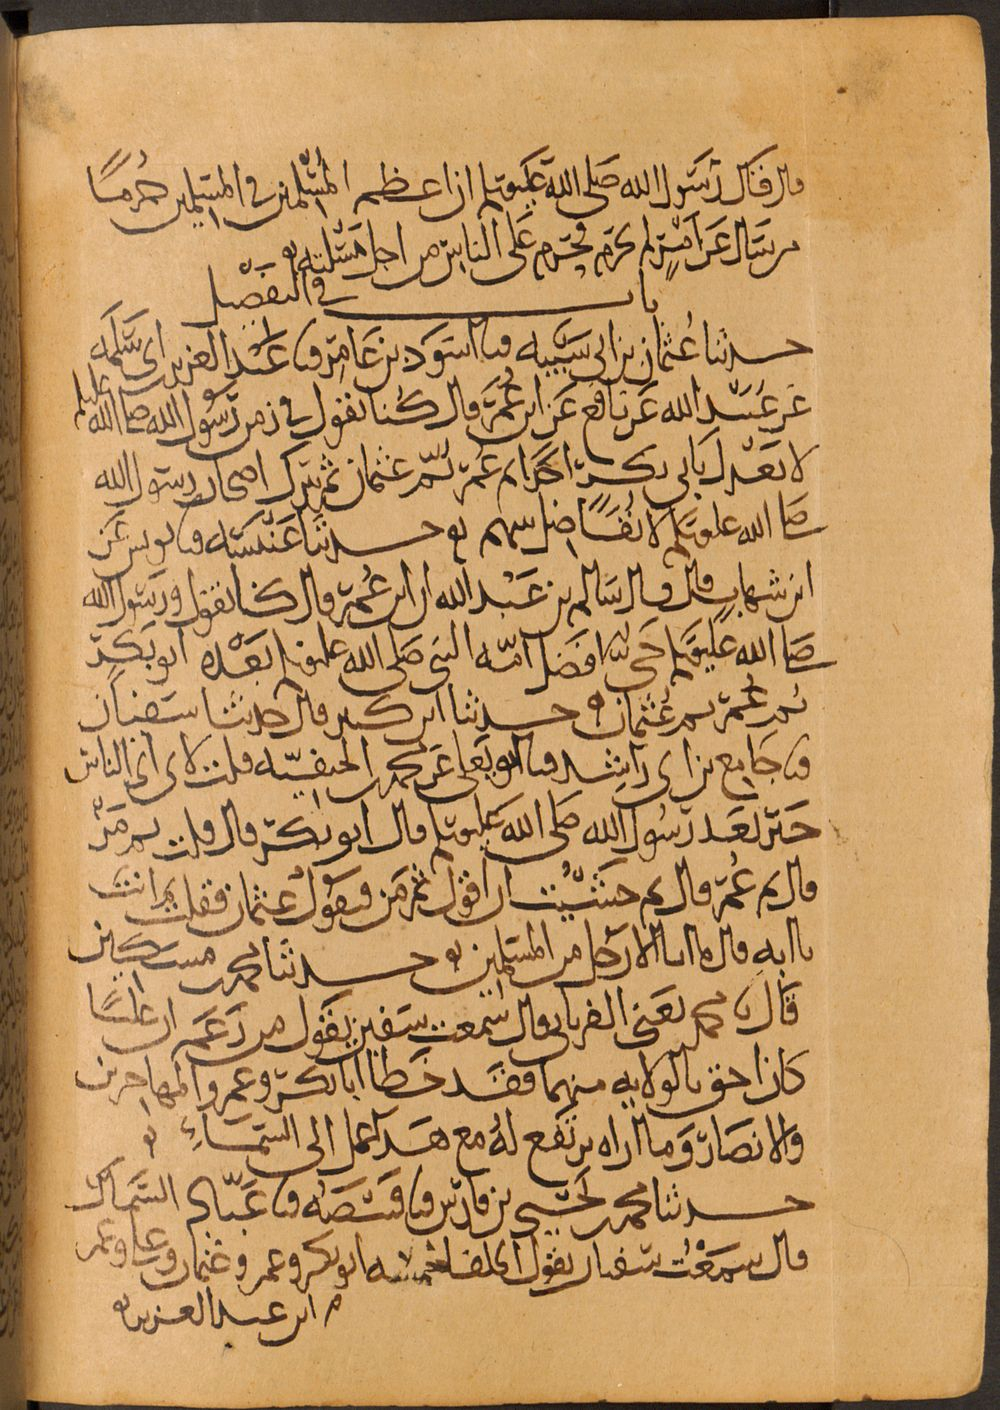 قال قال رسول الله صلى الله عليه وسلم ان اعظم المسلمين في المسلمين جرما
من سال عن امر لم يحرم فحرم على الناس من اجل مسئلته
باب في التفضيل
حدثنا عثمان بن ابي شيبه نا اسود بن عامر نا عبد العزيز بن ابي سلمه
عن عبيد الله عن نافع عن ابن عمر قال كنا نقول في زمن رسول الله صلى الله عليه وسلم
لا نعدل بابي بكر احدا ثم عمر ثم عثمن ثم نترك اصحاب رسول الله
صلى الله عليه وسلم لا نفاضل بينهم حدثنا عنبسه نا يونس عن
ابن شهاب قال قال سالم بن عبد الله ان ابن عمر قال كنا نقول ورسول الله
صلى الله عليه وسلم حي افضل امه النبي صلى الله عليه وسلم بعده ابو بكر
ثم عمر ثم عثمان حدثنا ابن كثير قال حدثنا سفيان
نا جامع بن ابي راشد نا ابو يعلى عن محمد بن الحنفيه قلت لابي اي الناس
خير بعد رسول الله صلى الله عليه وسلم قال ابو بكر قال قلت ثم من
قال ثم عمر قال ثم خشيت ان اقول ثم من فيقول عثمان فقلت ثم انت
يا ابه قال ما انا الا رجل من المسلمين حدثنا محمد بن مسكين
قال نا محمد يعني الفريابي قال سمعت سفين يقول من زعم ان عليا
كان احق بالولايه منهما فقد خطا ابا بكر وعمر والمهاجرين
والانصار وما اراه يرتفع له مع هذا عمل الى السماء
حدثنا محمد بن يحيى بن فارس نا قبيصه نا عباد السماك
قال سمعت سفيان يقول الخلفا خمسه ابو بكر وعمر وعثمان وعلي وعمر
ابن عبد العزيز